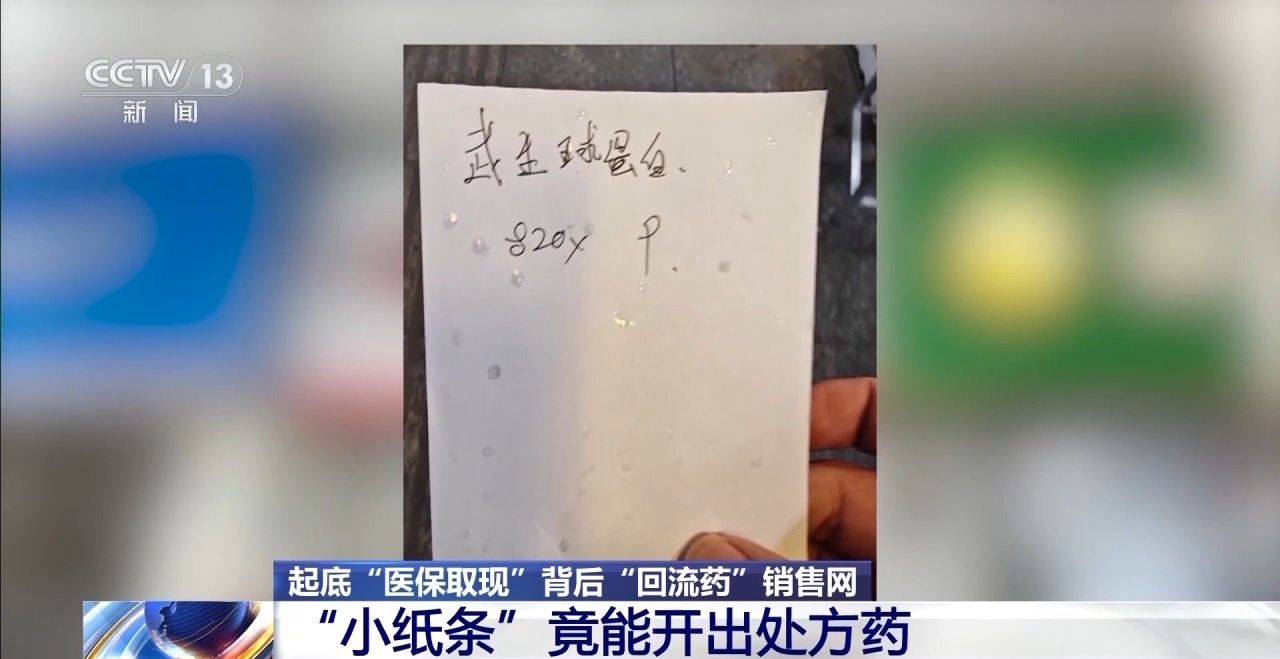 CCTV 13
新闻
武生球蛋白.
820X P.
起底“医保取现”背后“回流药”销售网
“小纸条”竟能开出处方药